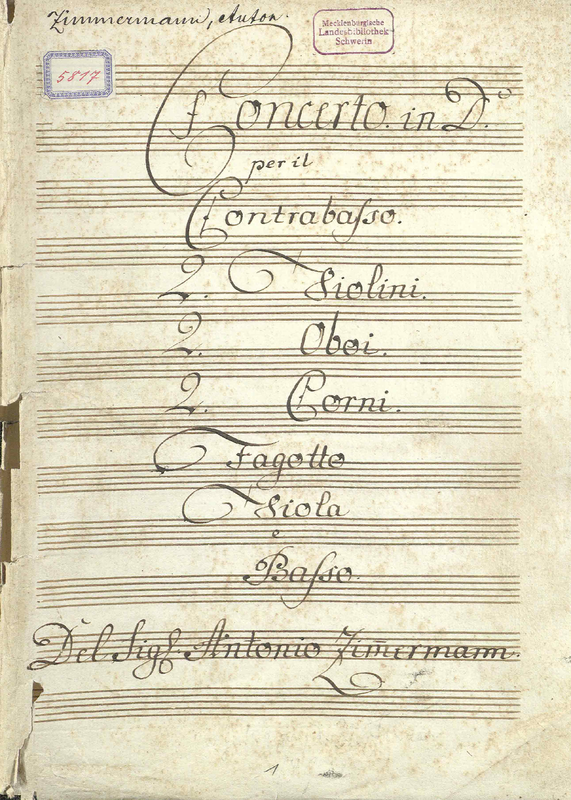 Zimmermann, Anton.
Mecklenburgische
Landesbibliothek
Schwerin
5817
Concerto. in D.
per il
Contrabaſso.
2. Violini.
2. Oboi.
2. Corni.
Fagotto
Viola
e
Baſso.
Del Sigl. Antonio Zim̄ermann.
1